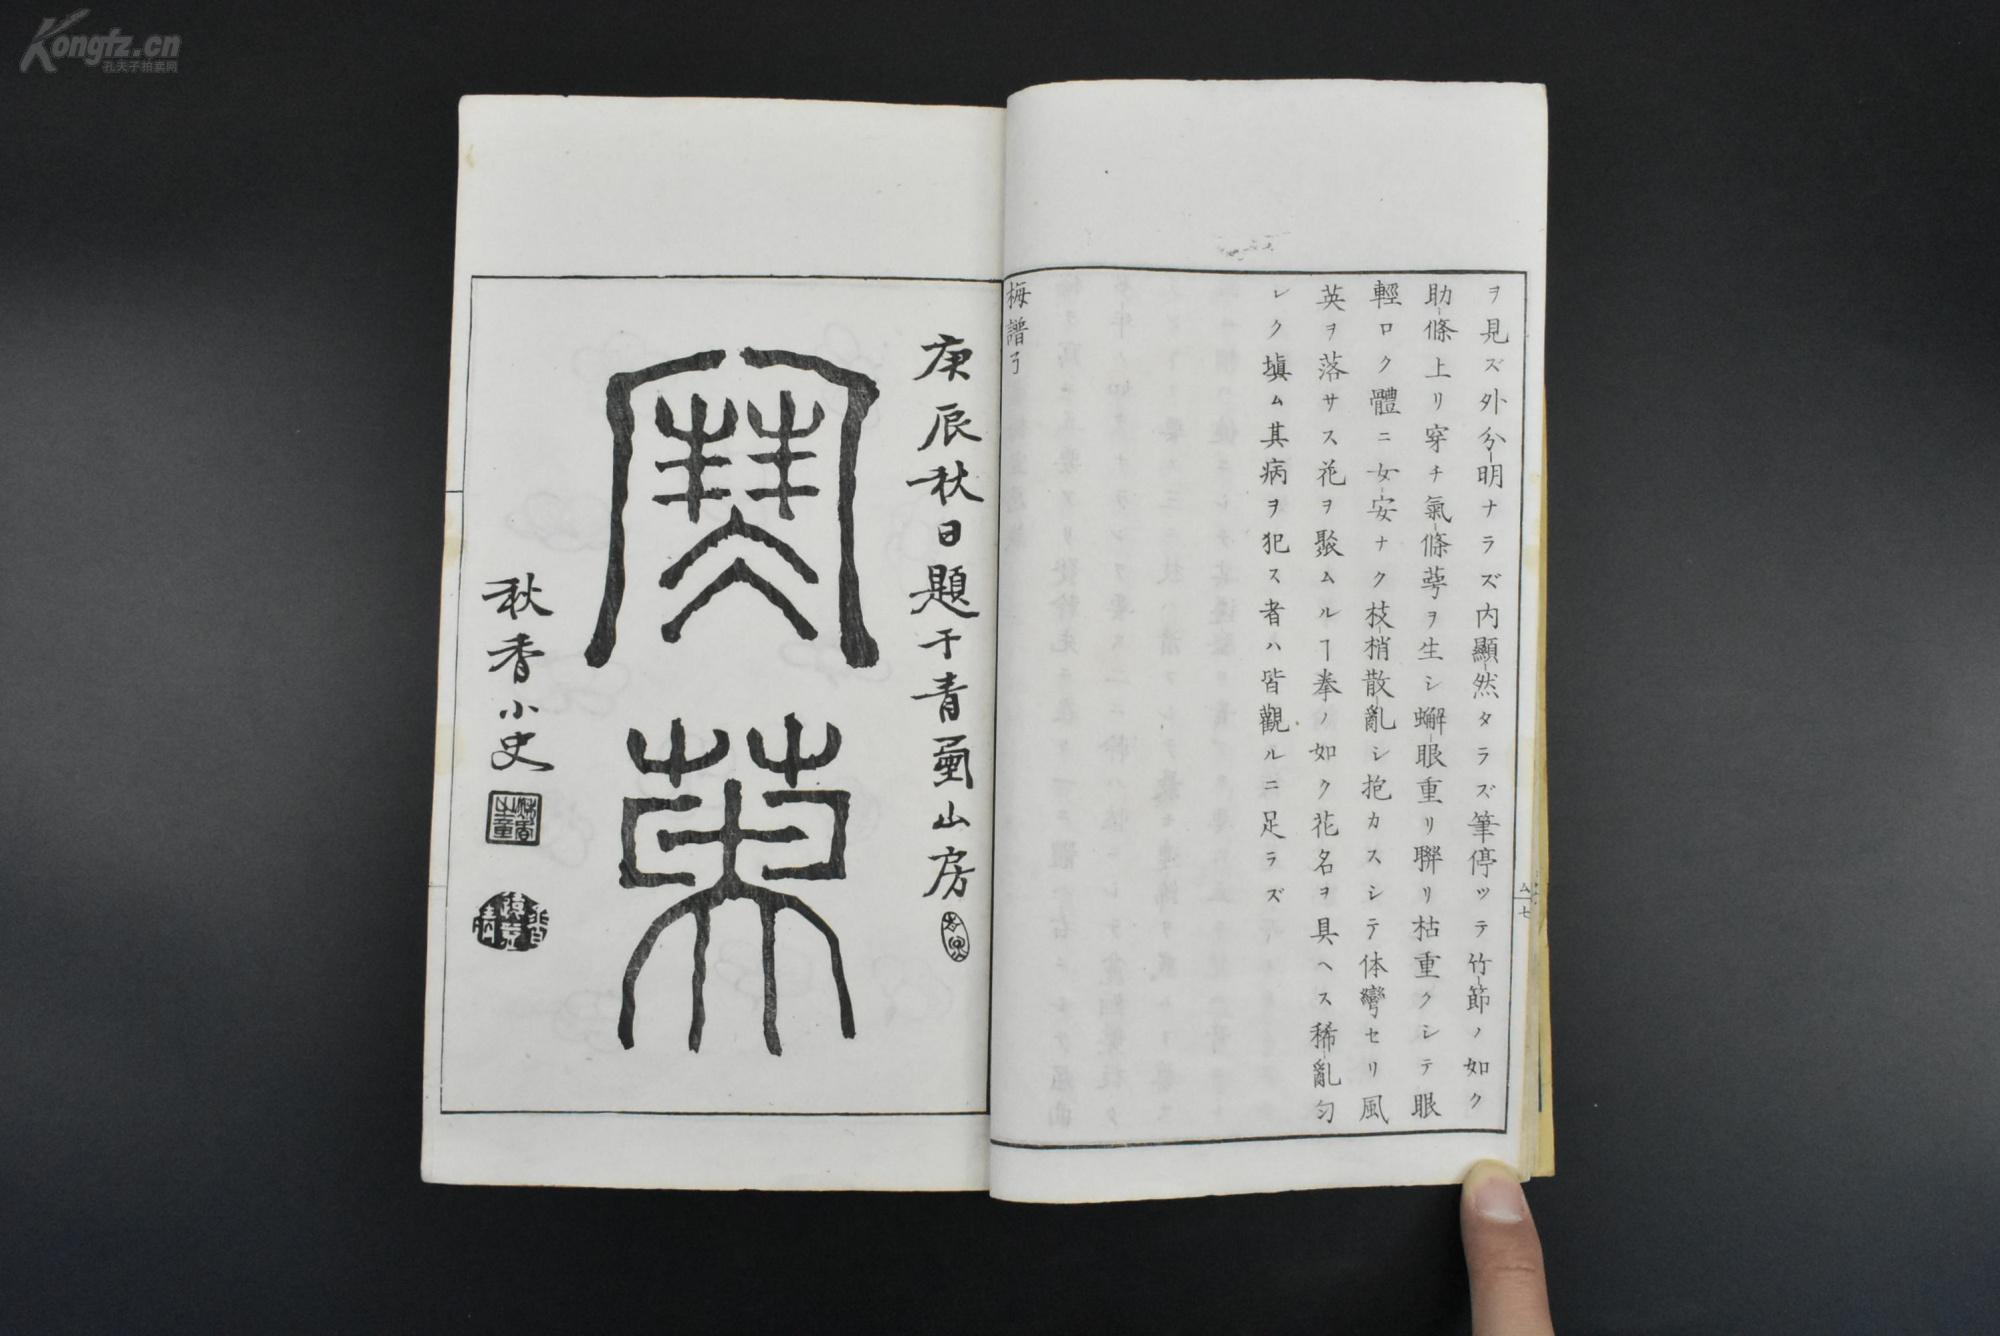 ヲ見ズ外分明ナラズ内顯然タラズ筆停ツテ竹節ノ如ク
助條上リ穿チ氣條萼ヲ生シ蠏眼重リ聨リ枯重クシテ眼
輕ロク體ニ女安ナク枝梢散亂シ抱カスシテ体彎セリ風
英ヲ落サス花ヲ聚ムルヿ拳ノ如ク花名ヲ具ヘス稀亂匀
レク塡ム其病ヲ犯ス者ハ皆觀ルニ足ラズ
梅譜
庚辰秋日題于青山房
秋香小史
Kongfz.cn
孔夫子拍卖网